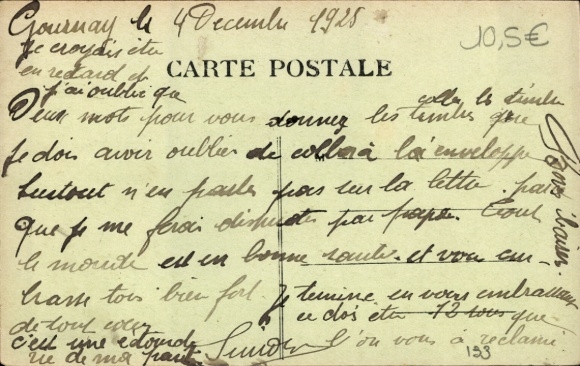 Gournay le 4 Decembre 1925
10,5€
Je croyais être
en retard et
j'ai oublié que
CARTE POSTALE
coller les timbres
Deux mots pour vous donner les timbres que
je dois avoir oublier de coller à la enveloppe
Surtout n'en parler pas sur la lettre. parce
que je me ferais disputer par papa. Tout
le monde est en bonne santé. et vous em-
brasse tous bien fort. Je termine en vous embrassant
de tout cœur
ce dois être 12 sous que
l'on vous à réclamé
c'est une étourde
rie de ma part.
Bons baisers
133